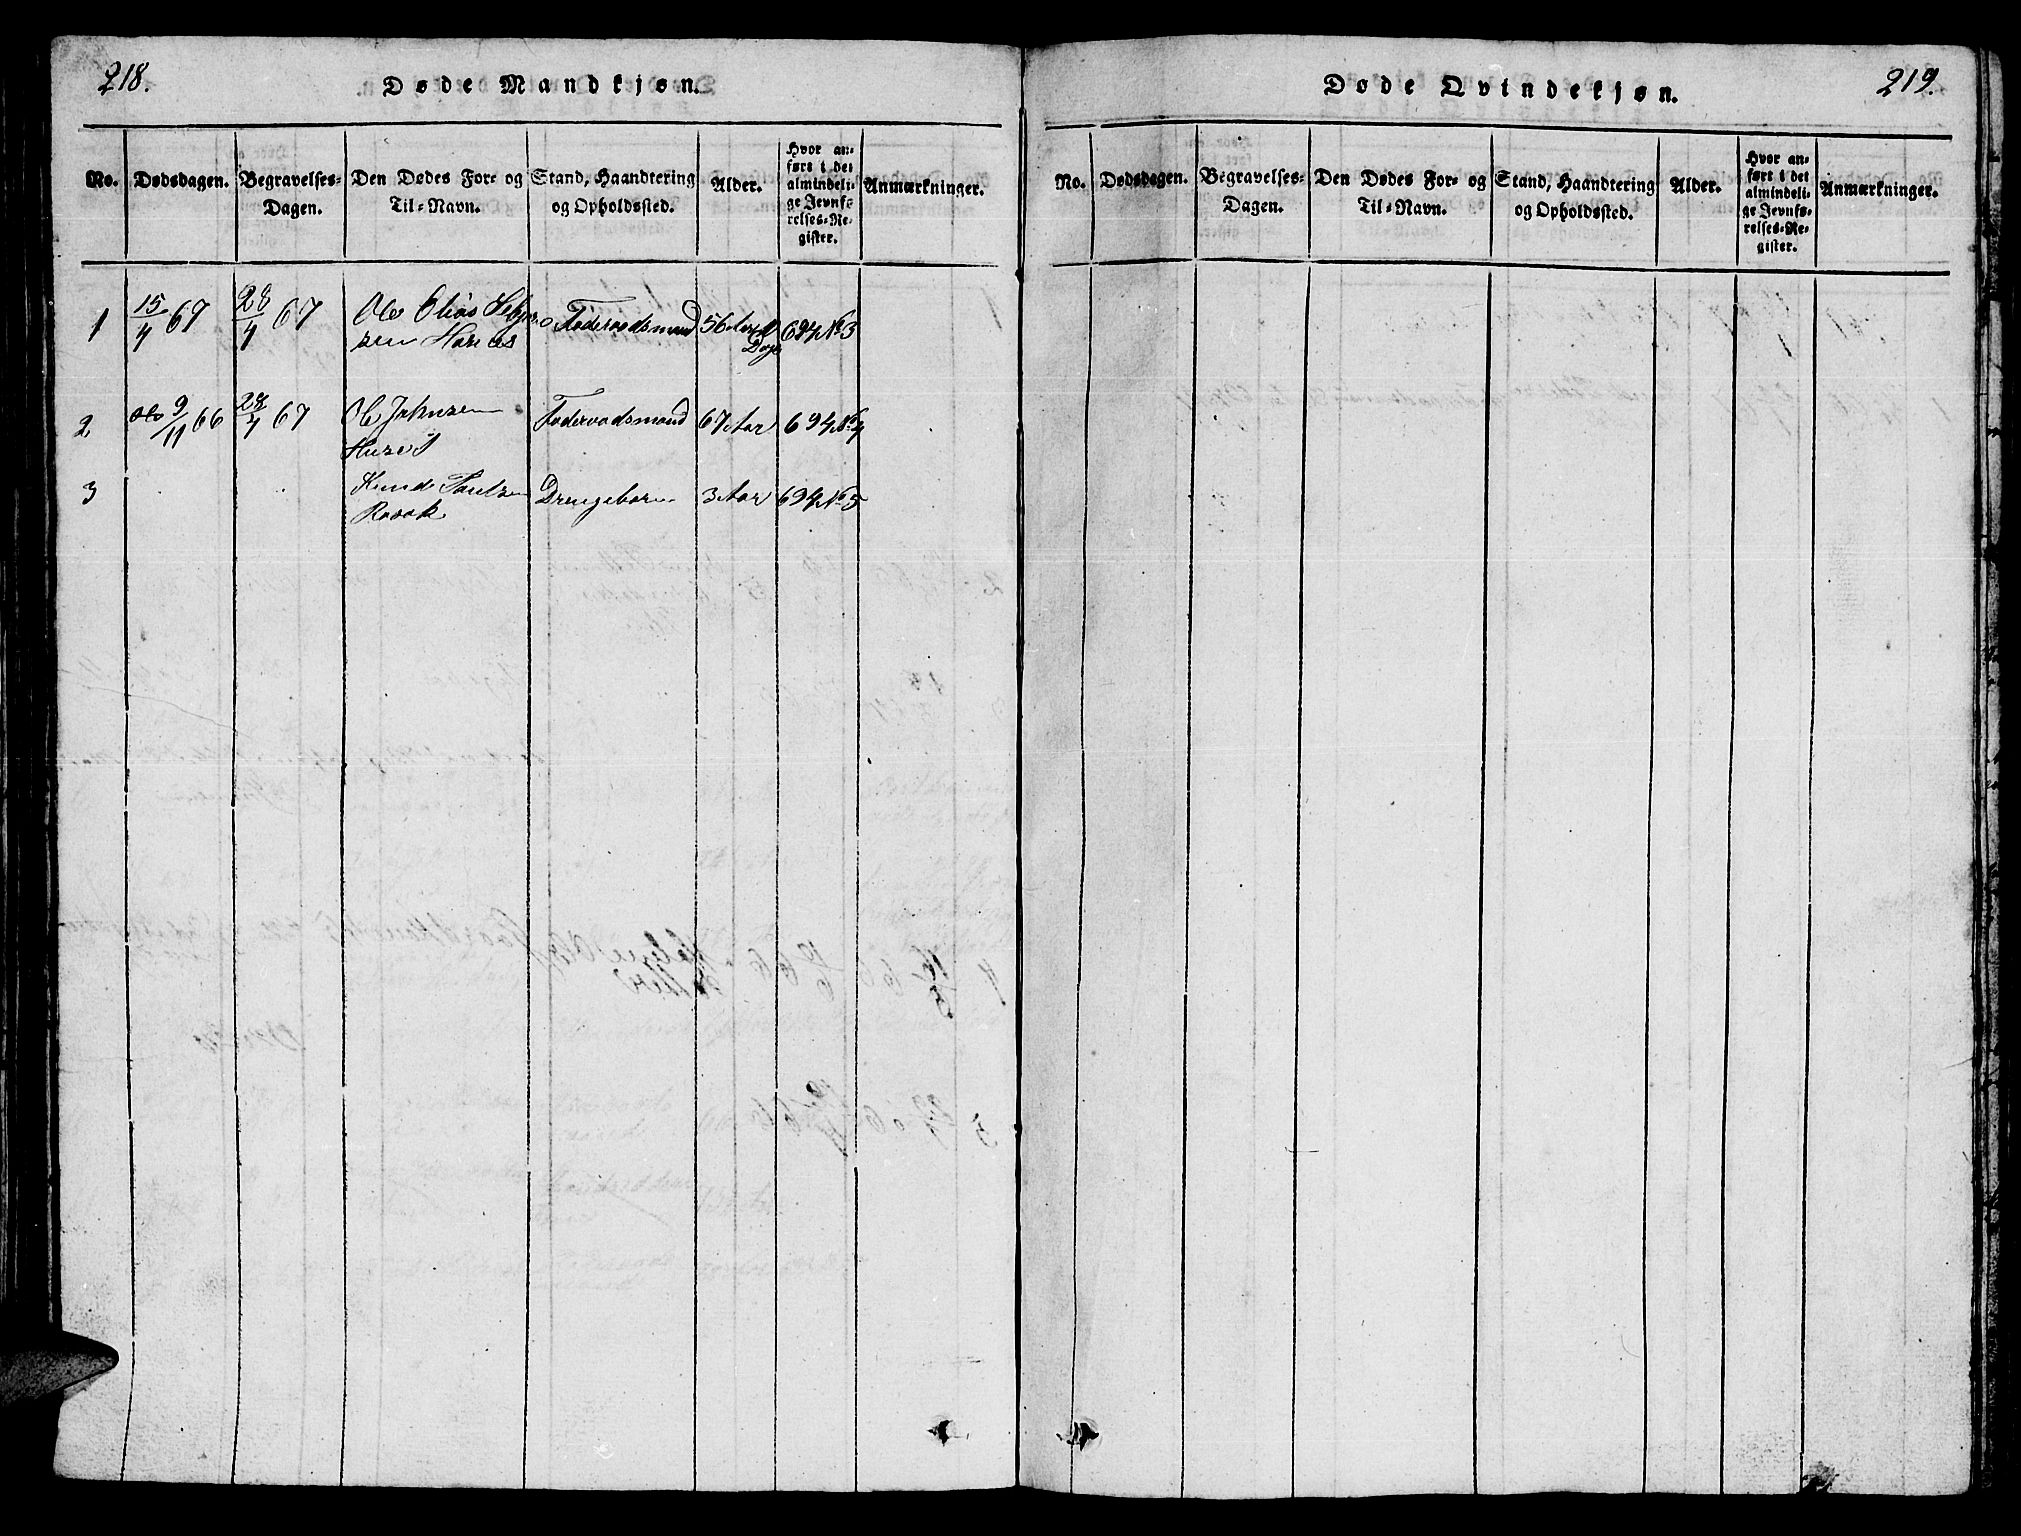 218.
Døde Mandkjøn.
No. Dødsdagen. Begravelses-Dagen. Den Dødes For- og Til-Navn. Stand, Haandtering og Opholdssted. Alder. Hvor anført i det almindelige Jevnførelses-Register. Anmærkninger.
1 15/4 67 28/4 67 Ole Elias Føderaadsmand 56 Aar 694 No 3
Dage
2 9/11 66 28/4 67 Ole Johnsen Føderaadsmand 67 Aar 694 No 4
3 Knud Drengebarn 3 Aar 694 No 5
219.
Døde Qvindekjøn.
No. Dødsdagen. Begravelses-Dagen. Den Dødes For- og Til-Navn. Stand, Haandtering og Opholdssted. Alder. Hvor anført i det almindelige Jevnførelses-Register. Anmærkninger.